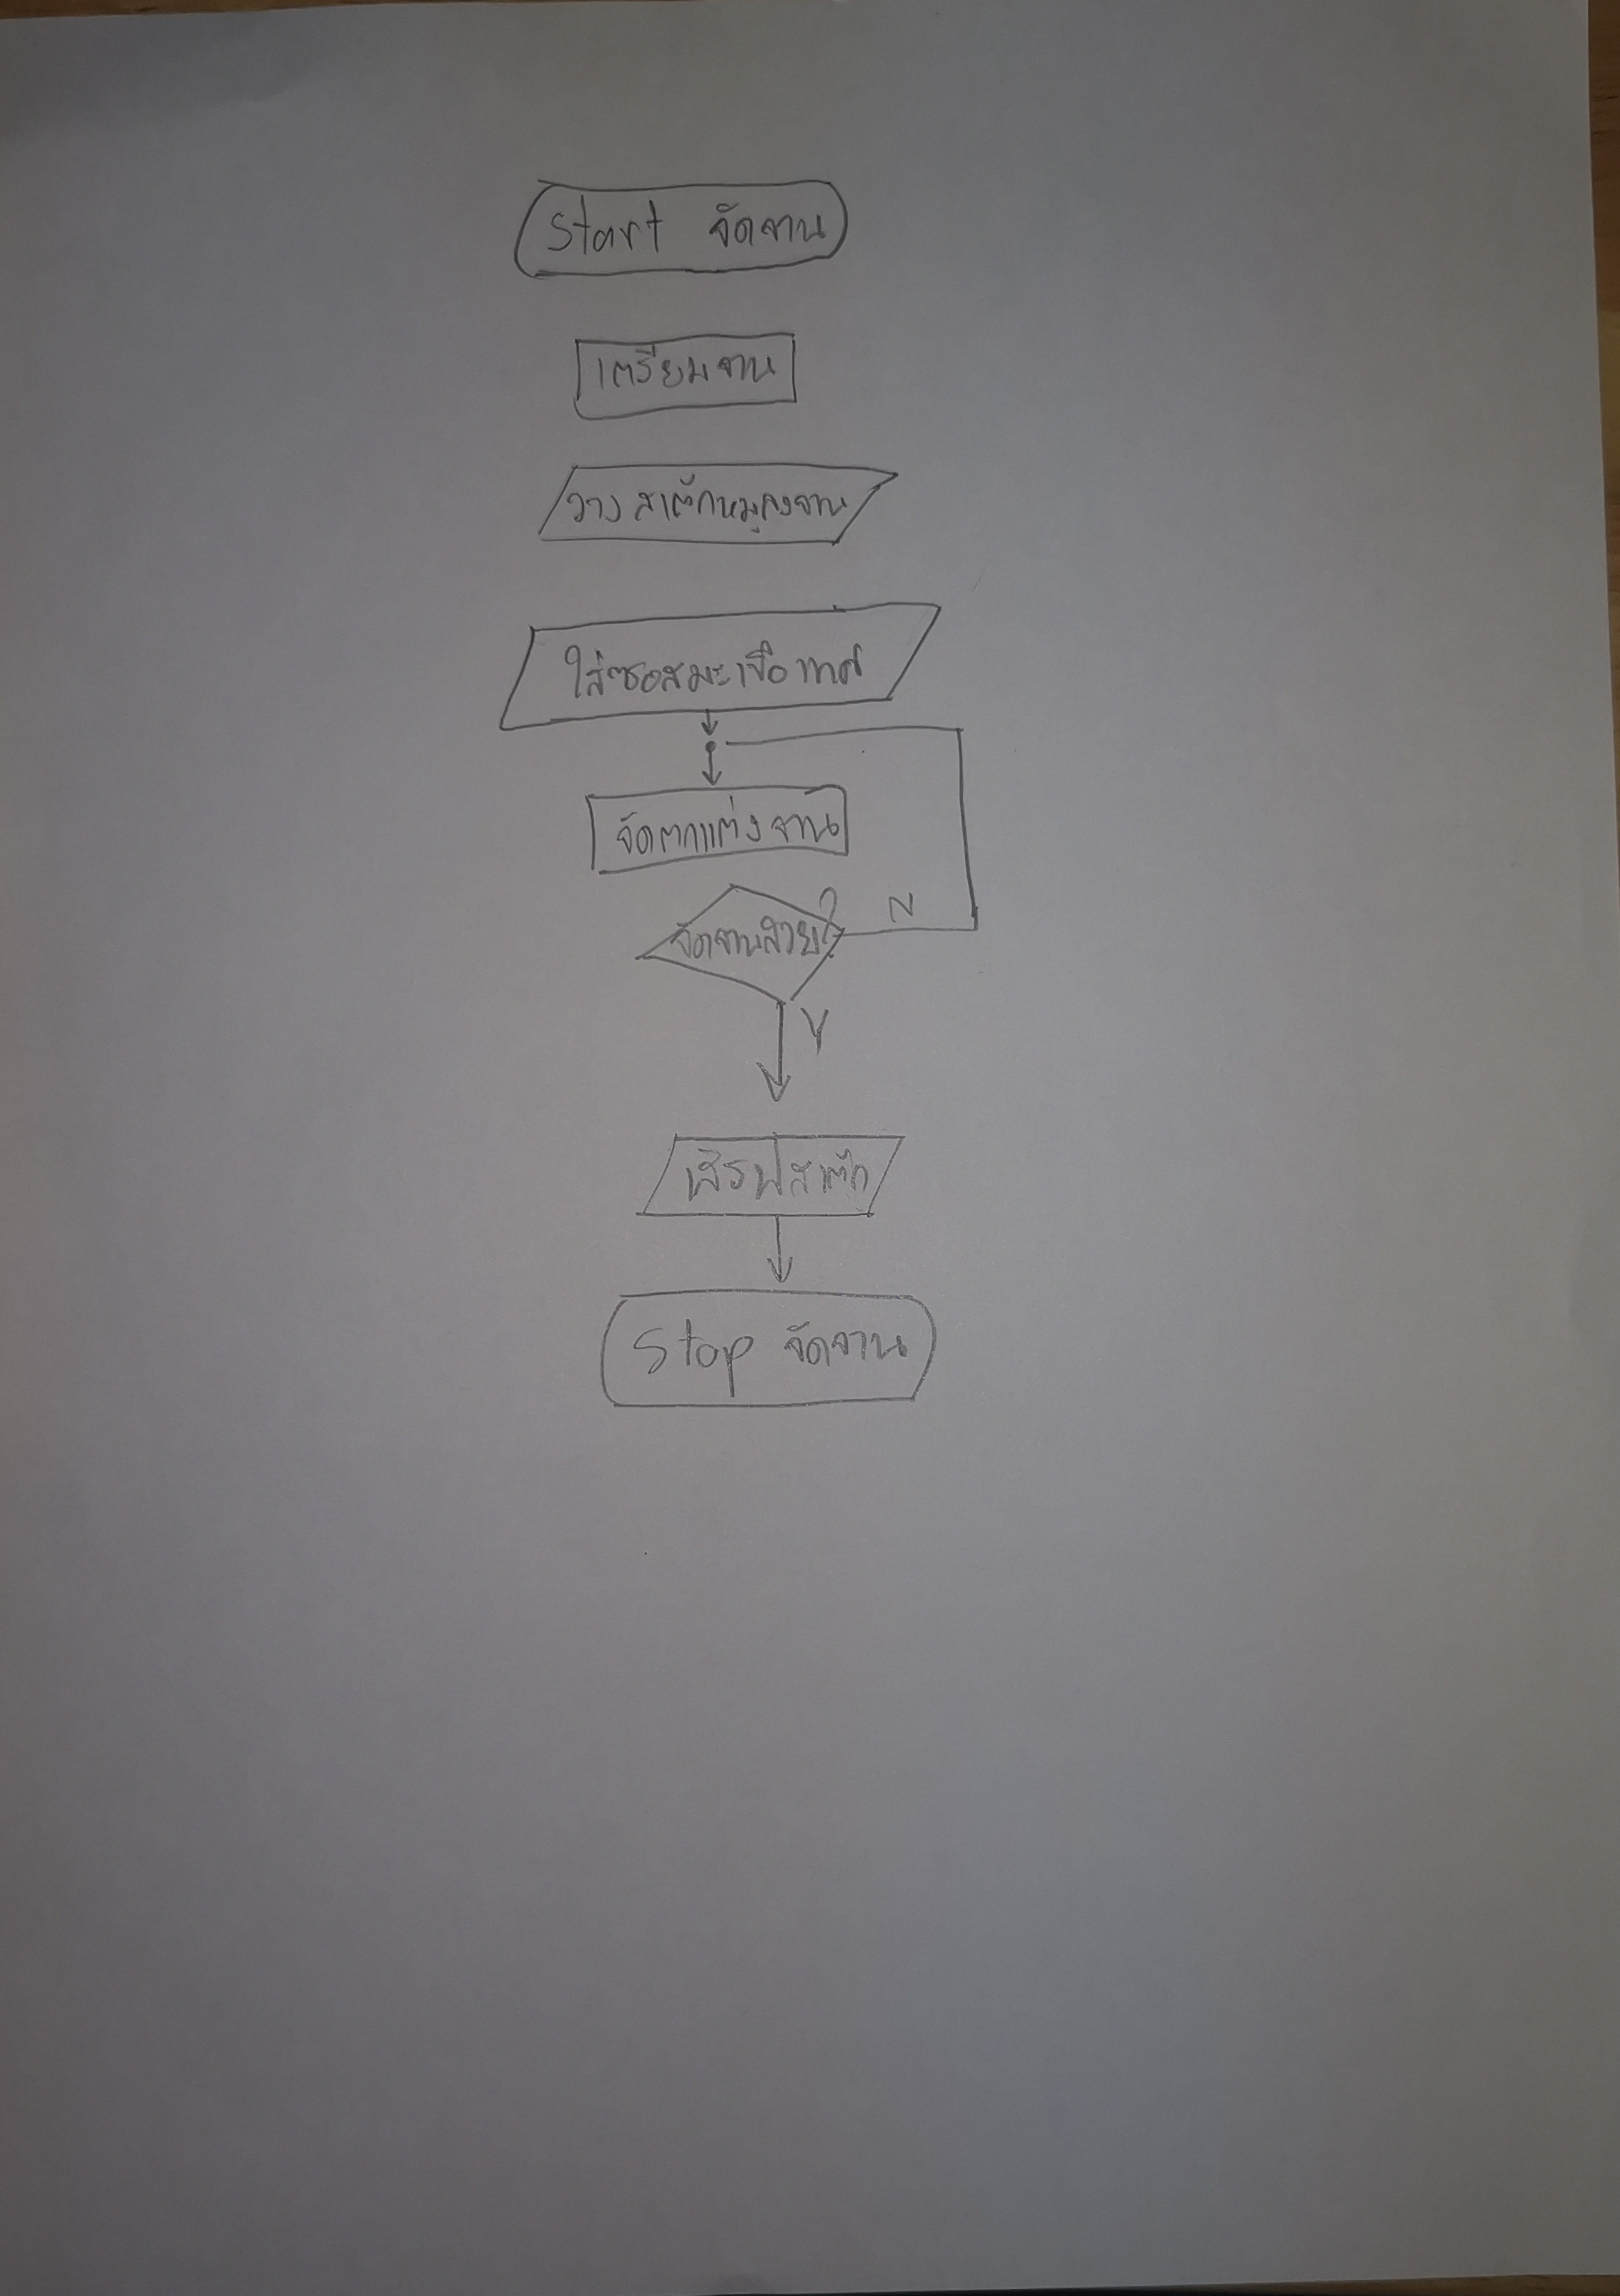 Start จัดจาน
เตรียมจาน
วางสเต๊กหมูลงจาน
ใส่ซอสมะเขือเทศ
จัดตกแต่งจาน
จัดจานสวย?
N
Y
เสิรฟสเต๊ก
Stop จัดจาน